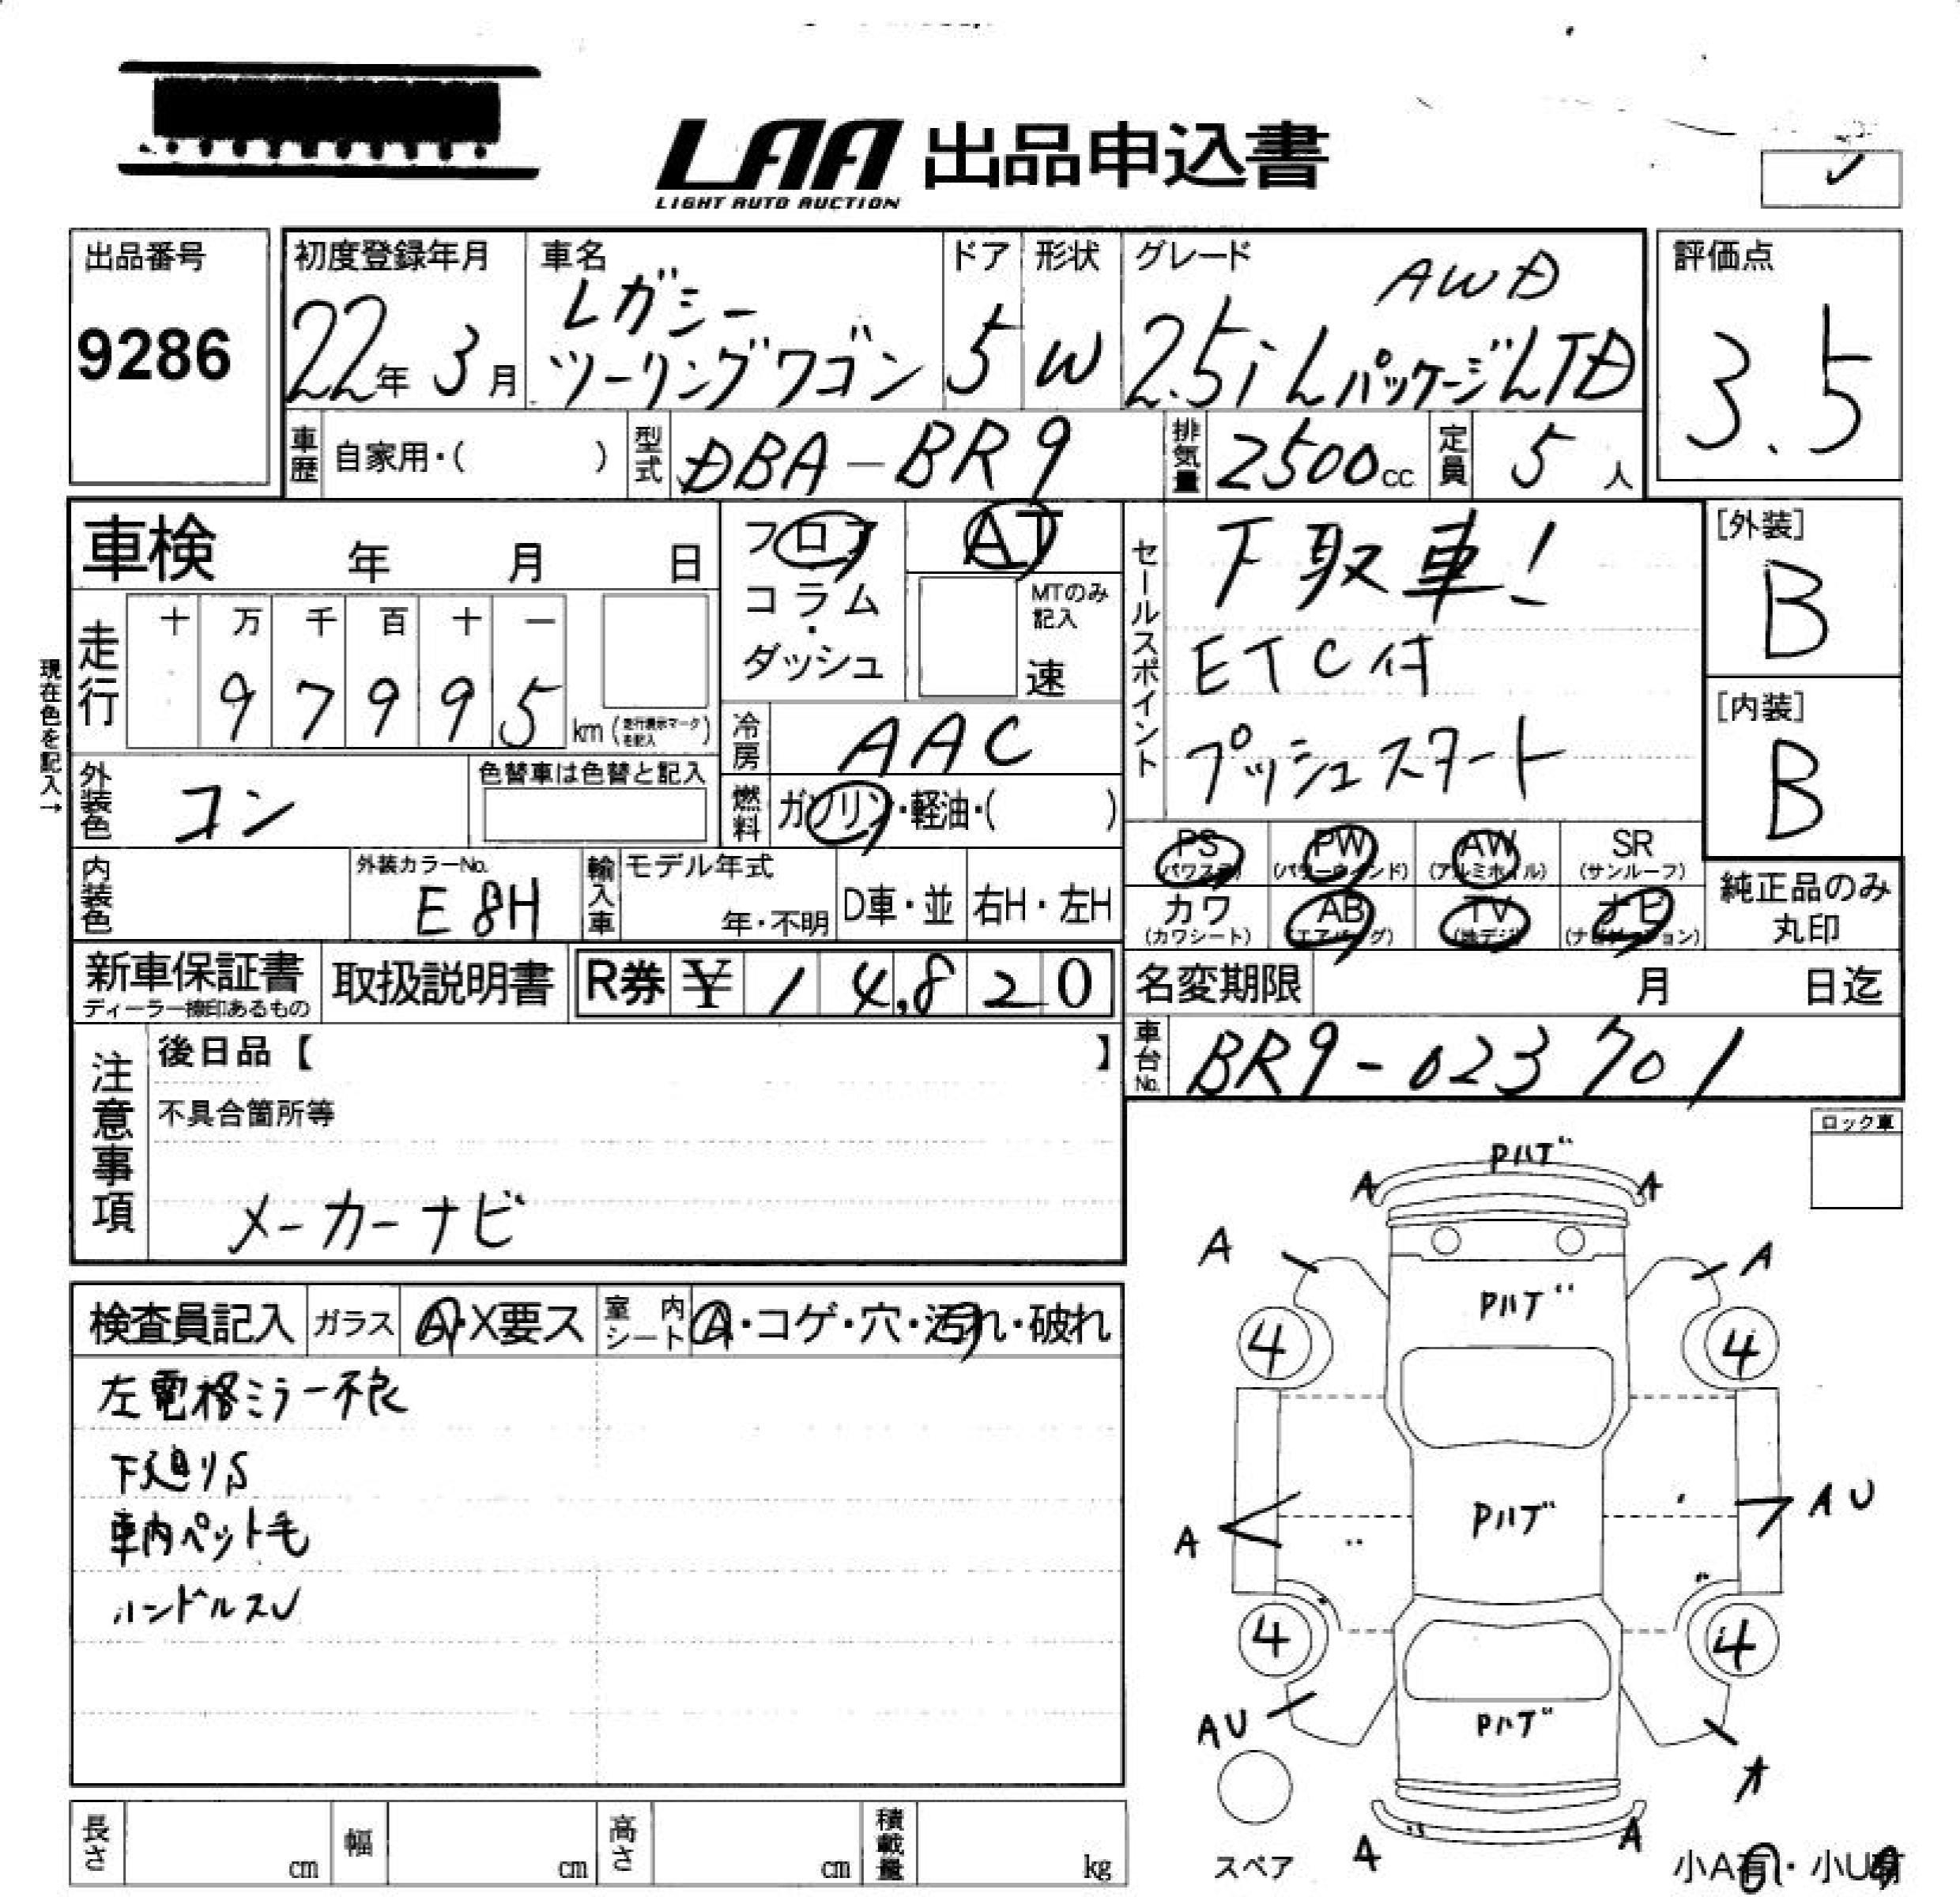 LAA 出品申込書
LIGHT AUTO AUCTION
出品番号
9286
初度登録年月
22年 3月
車名
レガシー
ツーリングワゴン
ドア
5
形状
W
グレード
AWD
2.5i Lパッケージ LTD
評価点
3.5
車歴 自家用・( )
型式 DBA-BR9
排気量 2500cc
定員 5人
車検 年 月 日
フロア
コラム
・
ダッシュ
AT
MTのみ
記入
速
セールスポイント
下取車!
ETC付
プッシュスタート
[外装]
B
[内装]
B
現在色を記入→
走行
十 万 千 百 十 一
9 7 9 9 5
km (走行表示マークを記入)
冷房 AAC
燃料 ガソリン・軽油・( )
外装色 コン
色替車は色替と記入
内装色
外装カラーNo.
E8H
輸入車
モデル年式
年・不明
D車・並
右H・左H
PS (パワステ)
PW (パワーウインド)
AW (アルミホイル)
SR (サンルーフ)
カワ (カワシート)
AB (エアバッグ)
TV (地デジ)
ナビ (ナビゲーション)
純正品のみ
丸印
新車保証書
ディーラー捺印あるもの
取扱説明書
R券 ¥ 14,820
名変期限 月 日迄
車台No. BR9-023701
注意事項
後日品【 】
不具合箇所等
メーカーナビ
ロック車
検査員記入
ガラス A・X要ス
室内シート A・コゲ・穴・汚れ・破れ
左電格ミラー不良
下廻りS
車内ペット毛
ハンドルスレ
Pハゲ
A A
A A
Pハゲ
4 4
A Pハゲ AU
4 4
AU Pハゲ
A
A A
スペア
小A有・小U有
長さ cm
幅 cm
高さ cm
積載量 kg